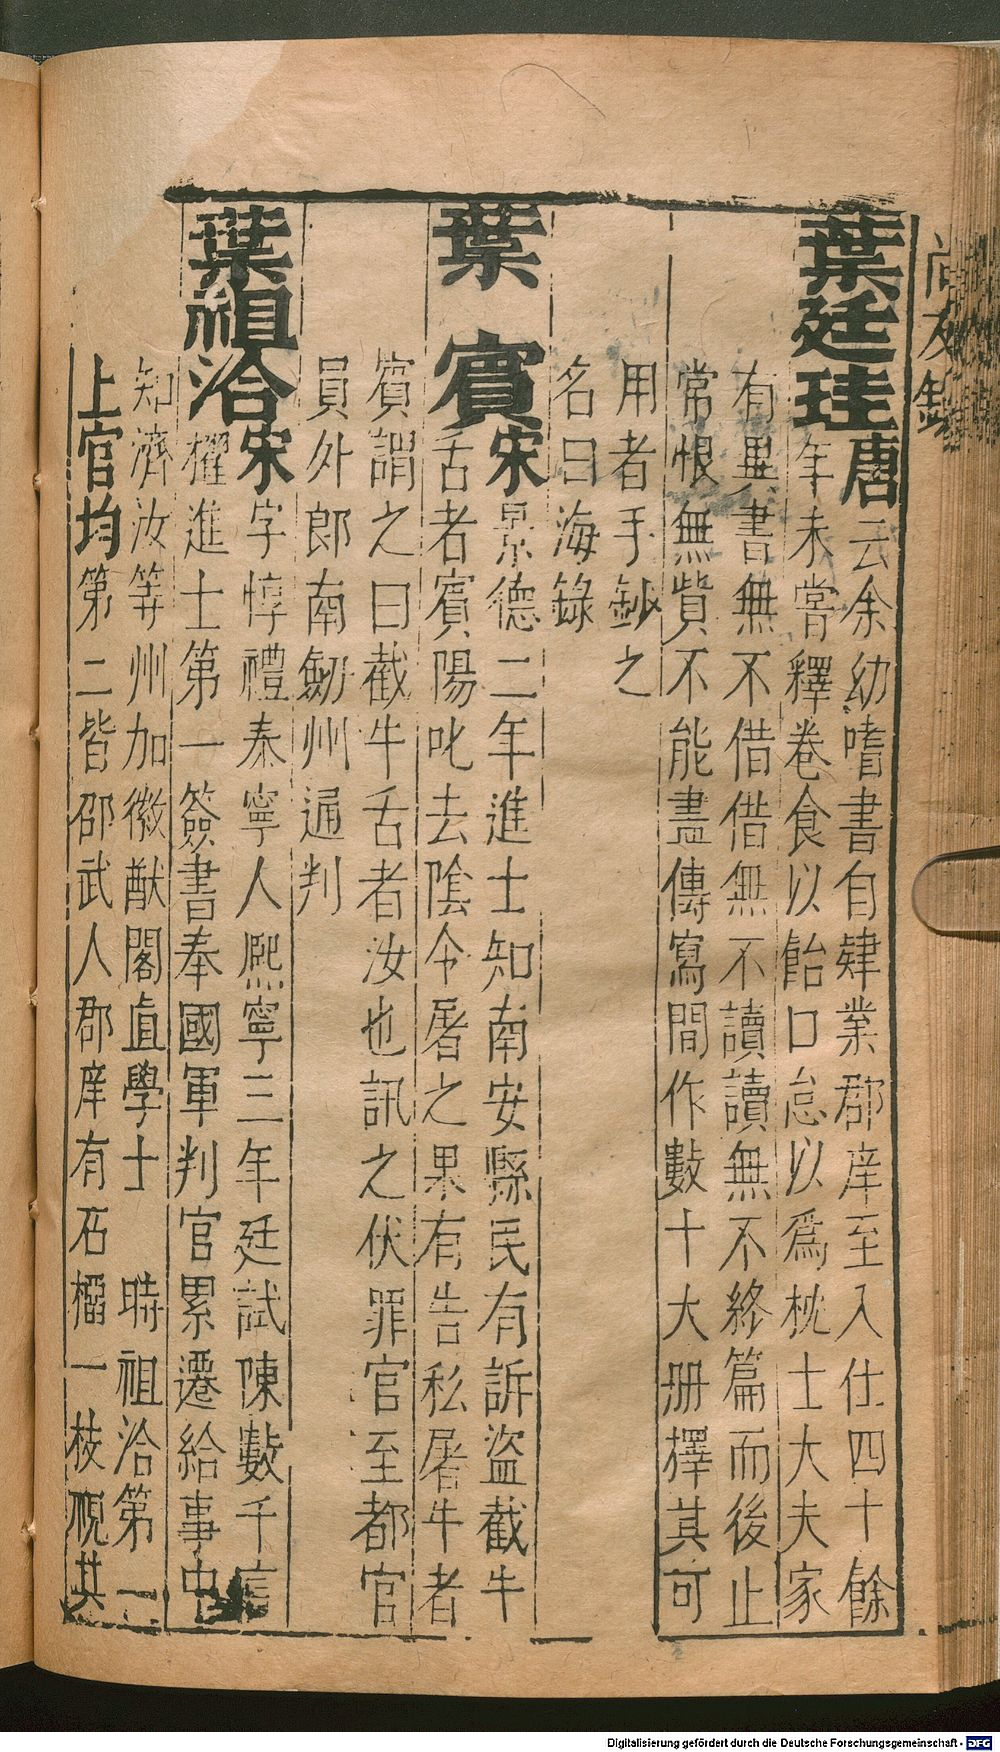 尚友錄
葉廷珪唐云余幼嗜書自肄業郡庠至入仕四十餘
年未嘗釋卷食以飴口怠以爲枕士大夫家
有異書無不借借無不讀讀無不終篇而後止
常恨無貲不能盡傳寫間作數十大册擇其可
用者手鈔之
名曰海錄
葉賓宋景德二年進士知南安縣民有訴盜截牛
舌者賓陽叱去陰令屠之果有告私屠牛者
賓謂之曰截牛舌者汝也訊之伏罪官至都官
員外郎南劒州通判
葉祖洽宋字惇禮泰寧人熈寧三年廷試陳數千言
擢進士第一簽書奉國軍判官累遷給事中
知濟汝等州加徽猷閣直學士 時祖洽第一
上官均第二皆邵武人郡庠有石榴一枝視其
Digitalisierung gefördert durch die Deutsche Forschungsgemeinschaft - DFG